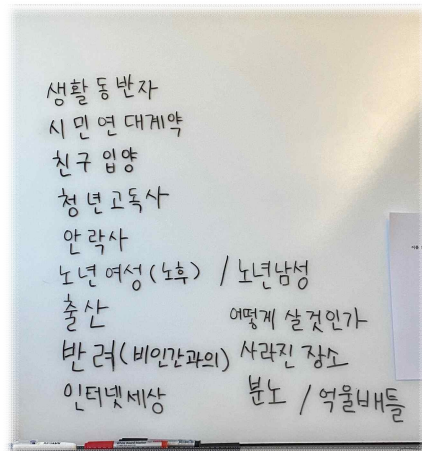 생활동반자
시민연대계약
친구입양
청년고독사
안락사
노년여성(노후) / 노년남성
출산
어떻게 살것인가
반려(비인간과의) 사라진 장소
인터넷세상
분노 / 억울배틀